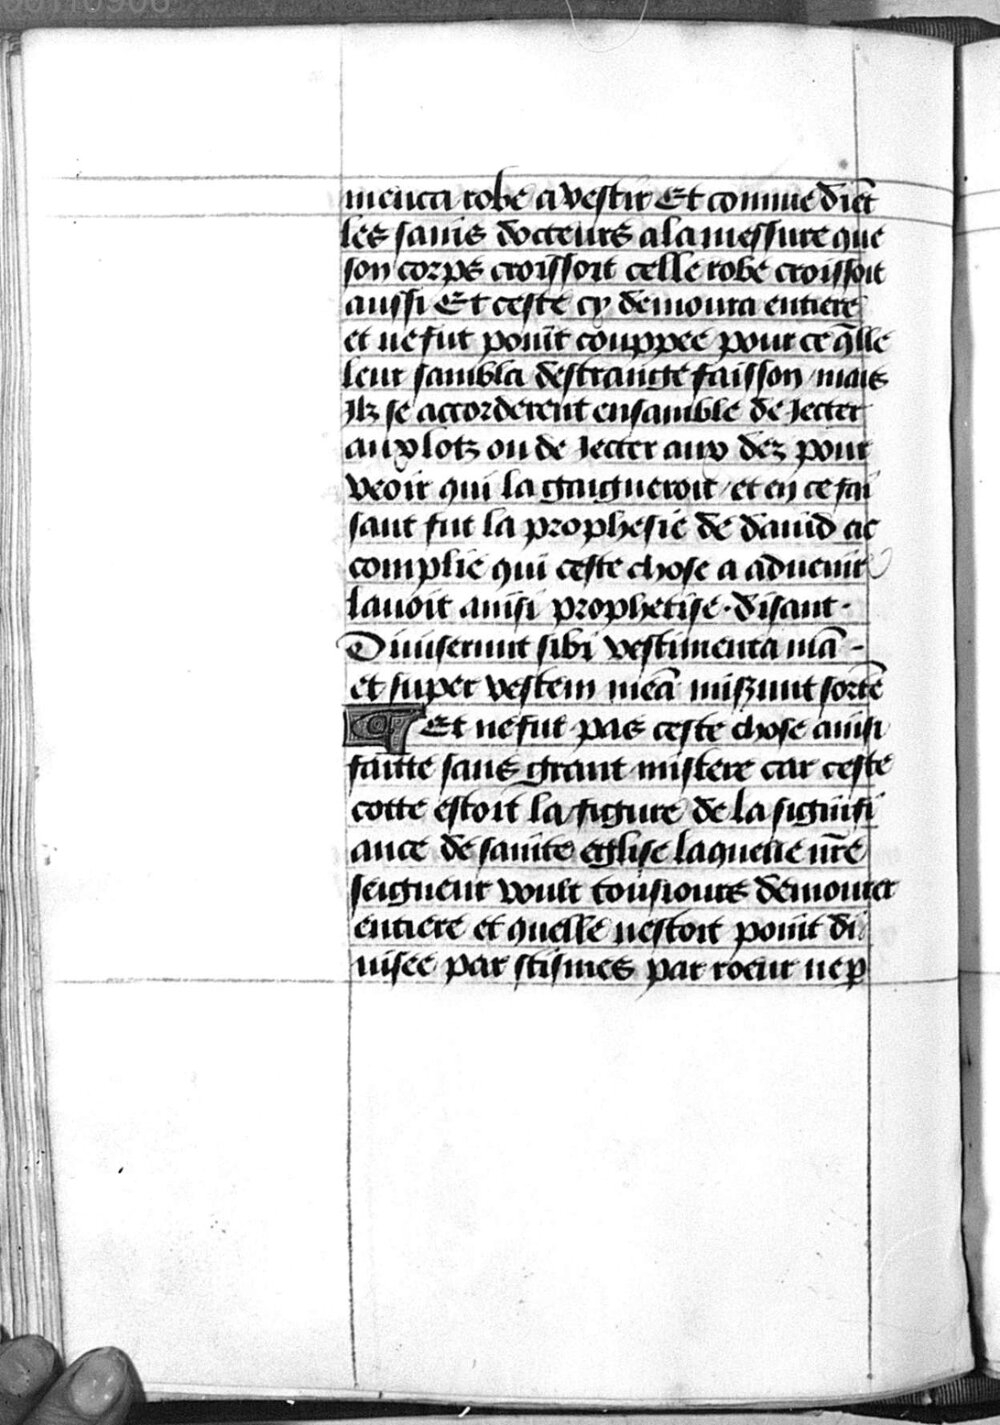 menca robe a vestir Et comme diēt
les sains docteurs a la messure que
son corps croissoit celle robe croissoit
aussi Et ceste cy demoura entiere
et ne fut point couppee pour ce q̄lle
leur sambla destrange faisson / mais
Ilz se accorderent ensamble de Jecter
aux lotz ou de Jecter aux dez pour
veoir qui la gaigneroit / et en ce fai
sant fut la prophesie de dauid ac
complie qui ceste chose a aduenir
lauoit ainsi prophetise · disant ·
Diuiserunt sibi vestimenta mā -
et super vestem meā miserunt sortē
¶ Et ne fut pas ceste chose ainsi
faitte sans grant mistere car ceste
cotte estoit la figure de la signifi
ance de sainte eglise laquelle nr̄e
seigneur voult tousiours demourer
entiere et quelle nestoit point di
uisee par scismes par roeur ne ꝑ